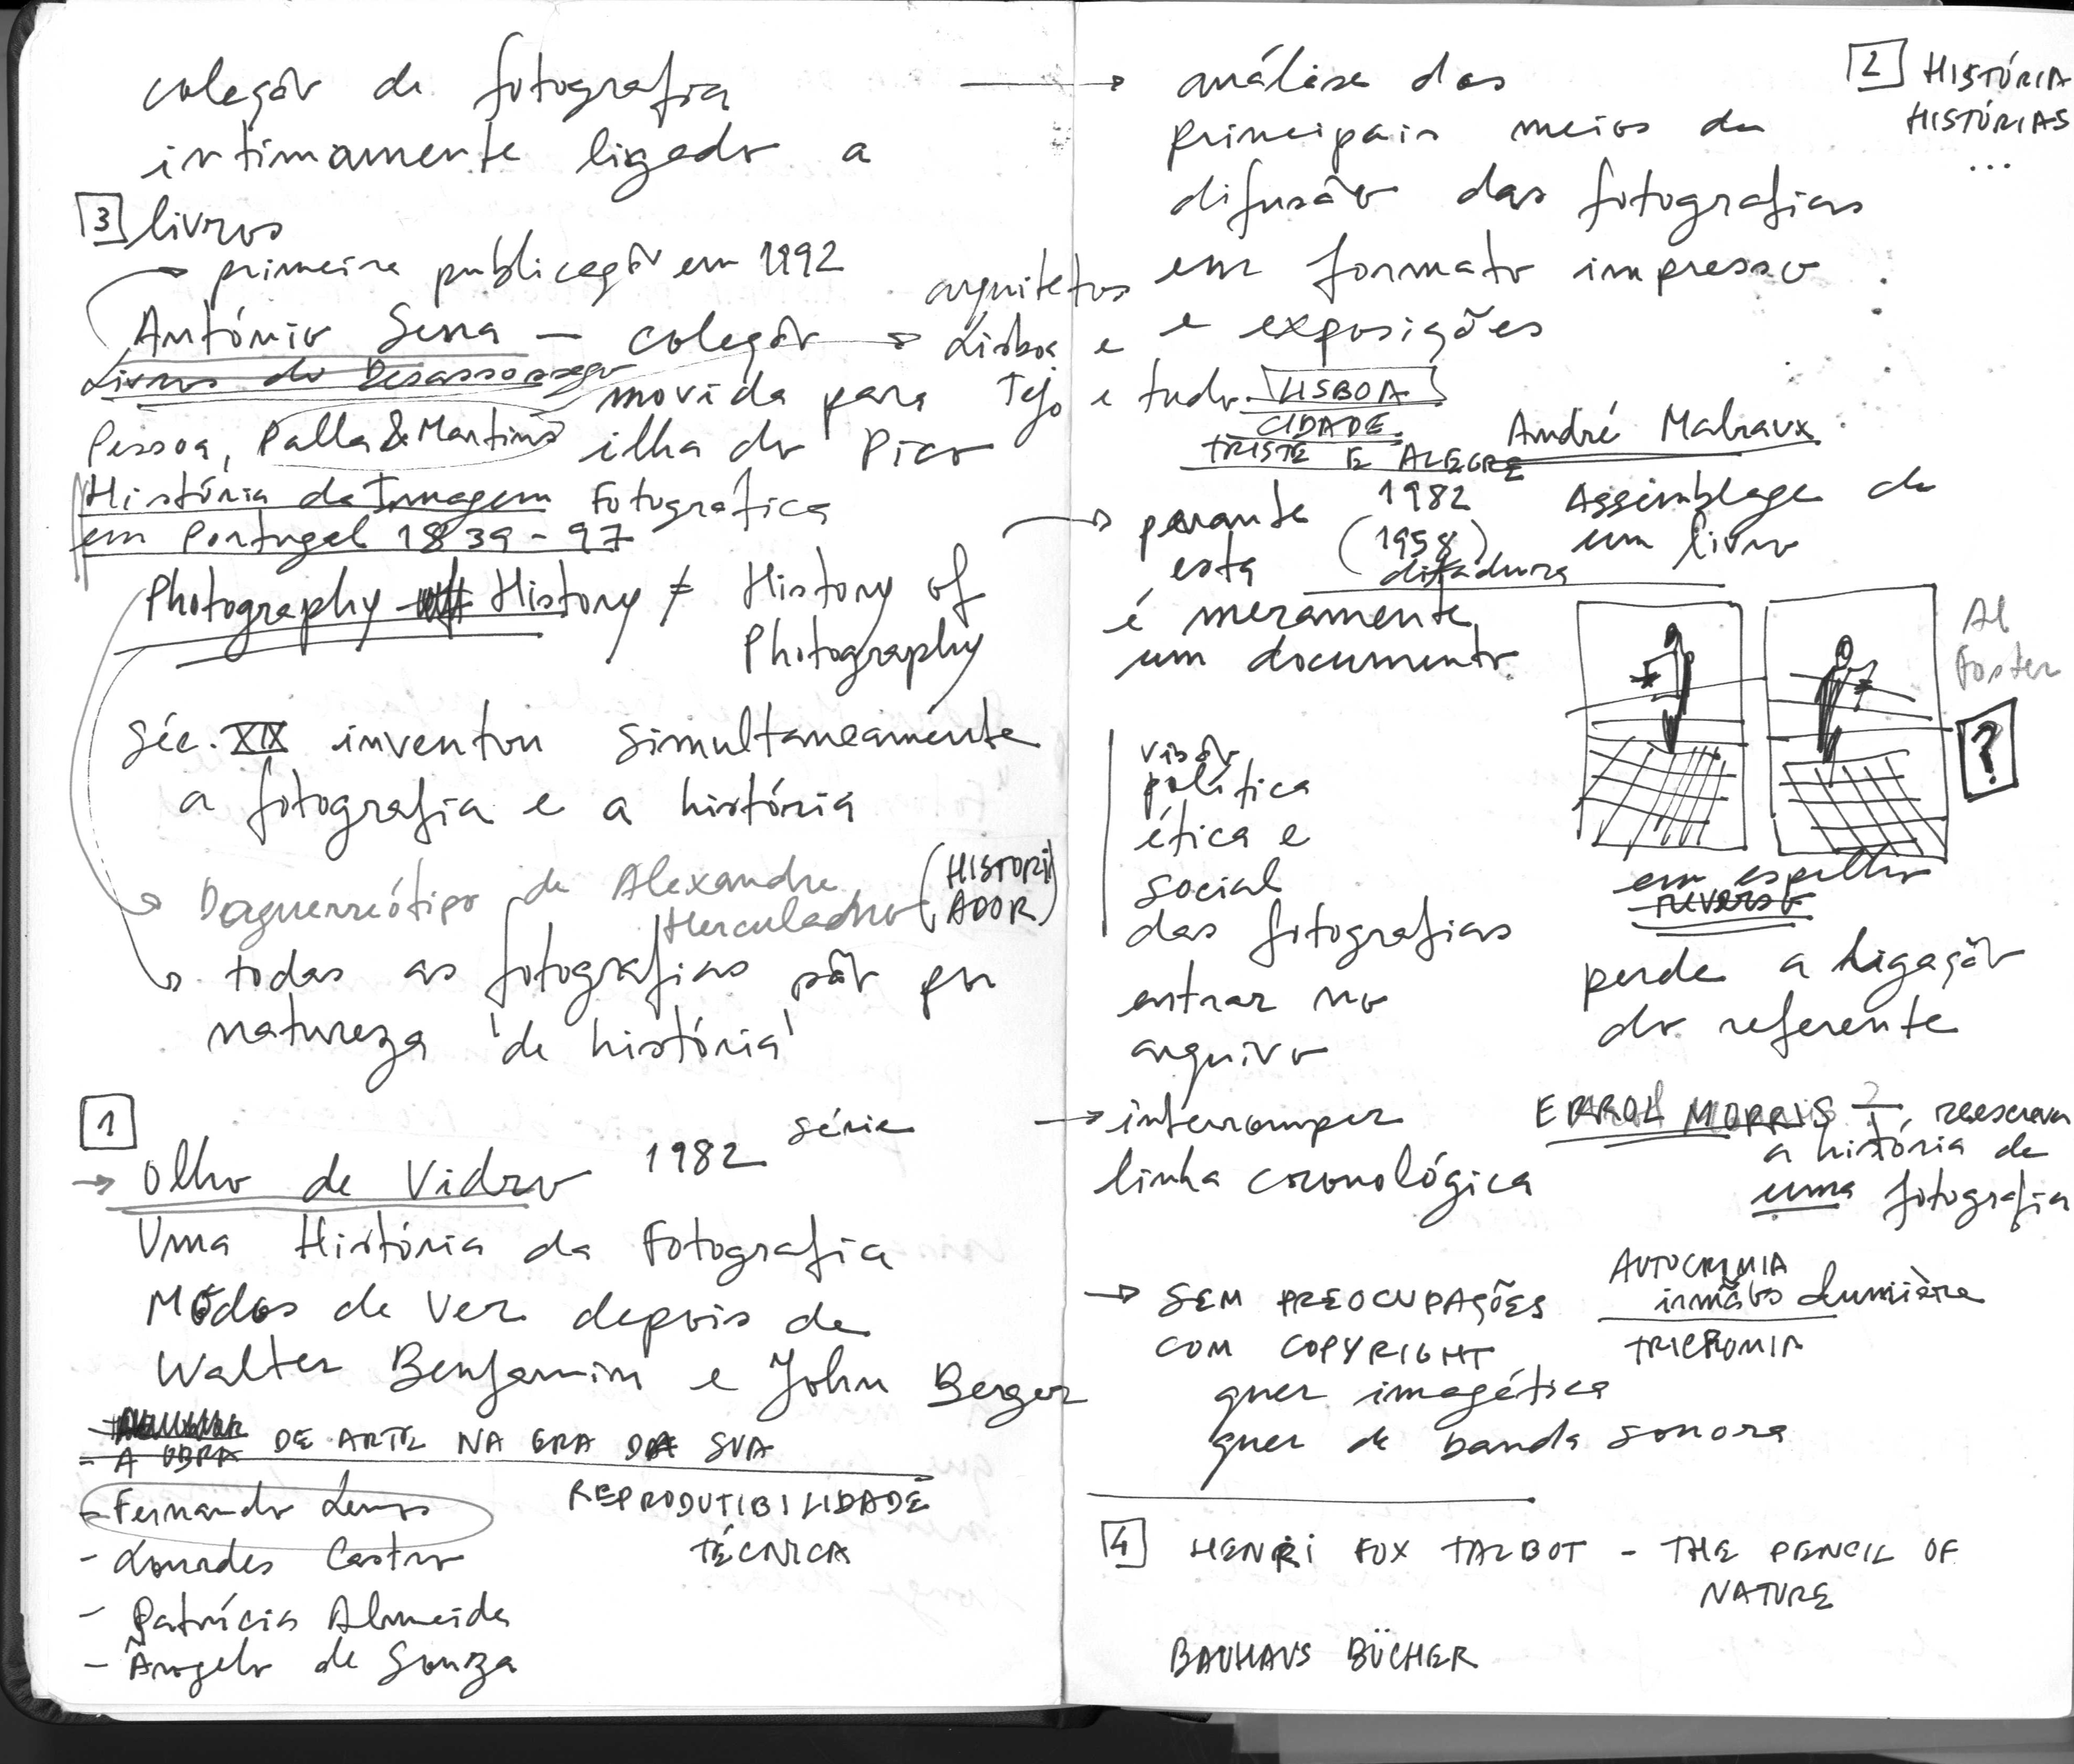 coleção de fotografia
intimamente ligado a
3 livros
primeira publicação em 1992
António Sena — coleção → arquitetos
Lisboa e
Livros do Desassossego
movida para Tejo e tudo.
Pessoa, Palla & Martins ilha do Pico
História da Imagem Fotografica
em Portugal 1839-97
Photography History ≠ History of
Photography
Séc. XIX inventou simultaneamente
a fotografia e a história
→ Daguerreótipo de Alexandre
Herculadno
(HISTORI
ADOR)
→ todas as fotografias são por
natureza 'de história'
1
→ Olho de Vidro 1982 série
Uma História da Fotografia
Modos de Ver depois de
Walter Benjamin e John Berger
- A OBRA DE ARTE NA ERA DA SUA
REPRODUTIBILIDADE
TÉCNICA
- Fernando Lemos
- Lourdes Castro
- Patrícia Almeida
- Ângelo de Souza
→ análise dos
principais meios de
difusão das fotografias
em formato impresso
e exposições
2 HISTÓRIA
HISTÓRIAS
...
LISBOA
CIDADE
TRISTE E ALEGRE
André Malraux
1982
(1958)
ditadura
Assemblage de
um livro
→ perante
esta
é meramente
um documento
Al
Foster
?
visão
política
ética e
social
das fotografias
entrar no
arquivo
em espelho
reverso
perde a ligação
do referente
→ interromper
linha cronológica
ERROL MORRIS reescreva
a história de
uma fotografia
→ SEM PREOCUPAÇÕES
COM COPYRIGHT
quer imagética
quer de banda sonora
AUTOCROMIA
irmãos Lumière
TRICROMIA
4 HENRI FOX TALBOT - THE PENCIL OF
NATURE
BAUHAUS BÜCHER